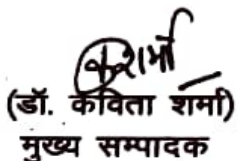 कशर्मा
(डॉ. कविता शर्मा)
मुख्य सम्पादक